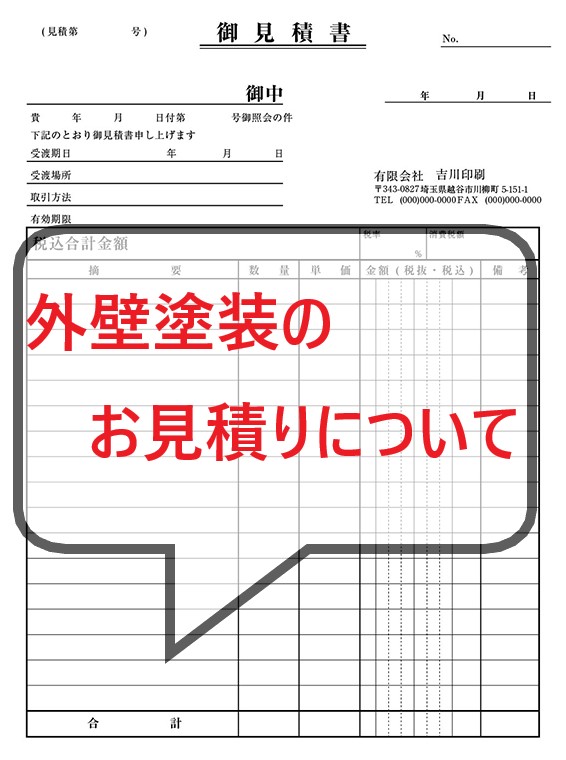 (見積第　号)
御見積書
No.
御中
年　月　日
貴　年　月　日付第　号御照会の件
下記のとおり御見積書申し上げます
受渡期日　年　月　日
受渡場所
取引方法
有効期限
有限会社　吉川印刷
〒343-0827 埼玉県越谷市川柳町 5-151-1
TEL (000)000-0000 FAX (000)000-0000
税込合計金額　税率　%　消費税額
摘　要　数　量　単　価　金額(税抜・税込)　備　考
外壁塗装の
お見積りについて
合　計